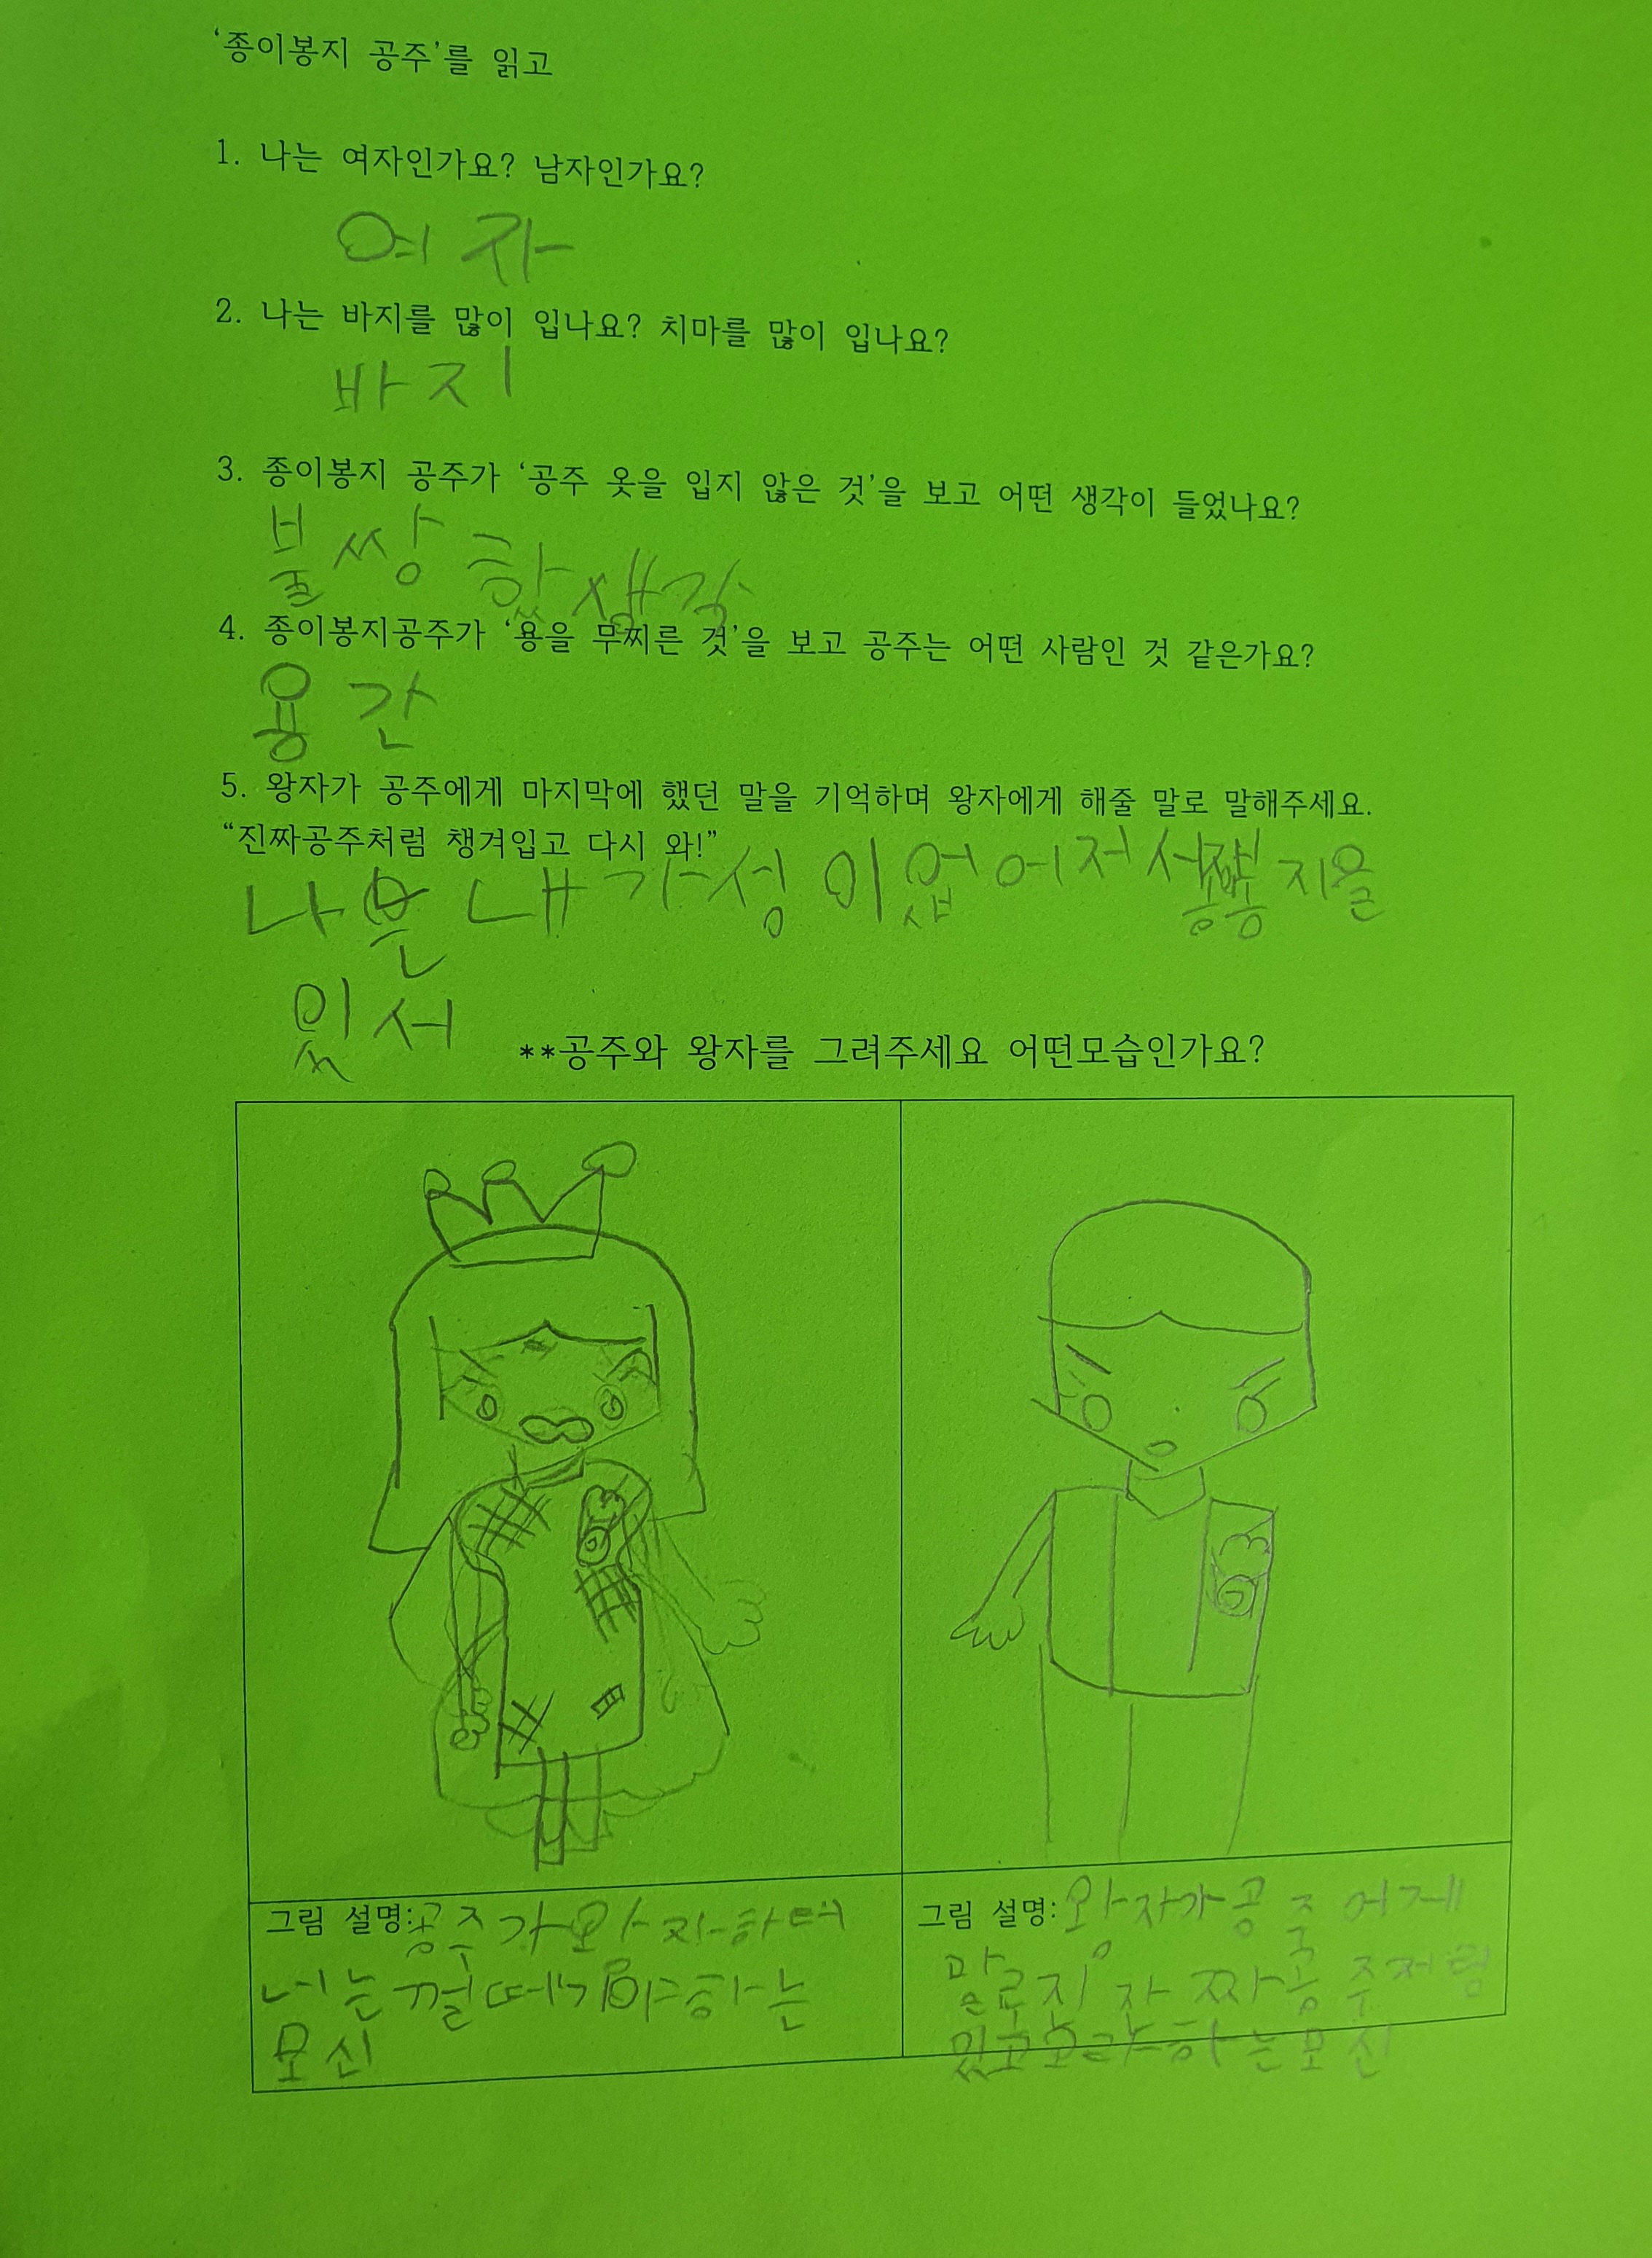 '종이봉지 공주'를 읽고
1. 나는 여자인가요? 남자인가요?
여자
2. 나는 바지를 많이 입나요? 치마를 많이 입나요?
바지
3. 종이봉지 공주가 '공주 옷을 입지 않은 것'을 보고 어떤 생각이 들었나요?
불쌍한 생각
4. 종이봉지공주가 '용을 무찌른 것'을 보고 공주는 어떤 사람인 것 같은가요?
용간
5. 왕자가 공주에게 마지막에 했던 말을 기억하며 왕자에게 해줄 말로 말해주세요.
"진짜공주처럼 챙겨입고 다시 와!"
나 내가 성이 없어저서 봉지을
있서
**공주와 왕자를 그려주세요 어떤모습인가요?
그림 설명: 공주가 왕자한테
너는 껍떼기야 하는
모신
그림 설명: 왕자가 공주에게
말로 진짜 공주처럼
있고 오라 하는 모신